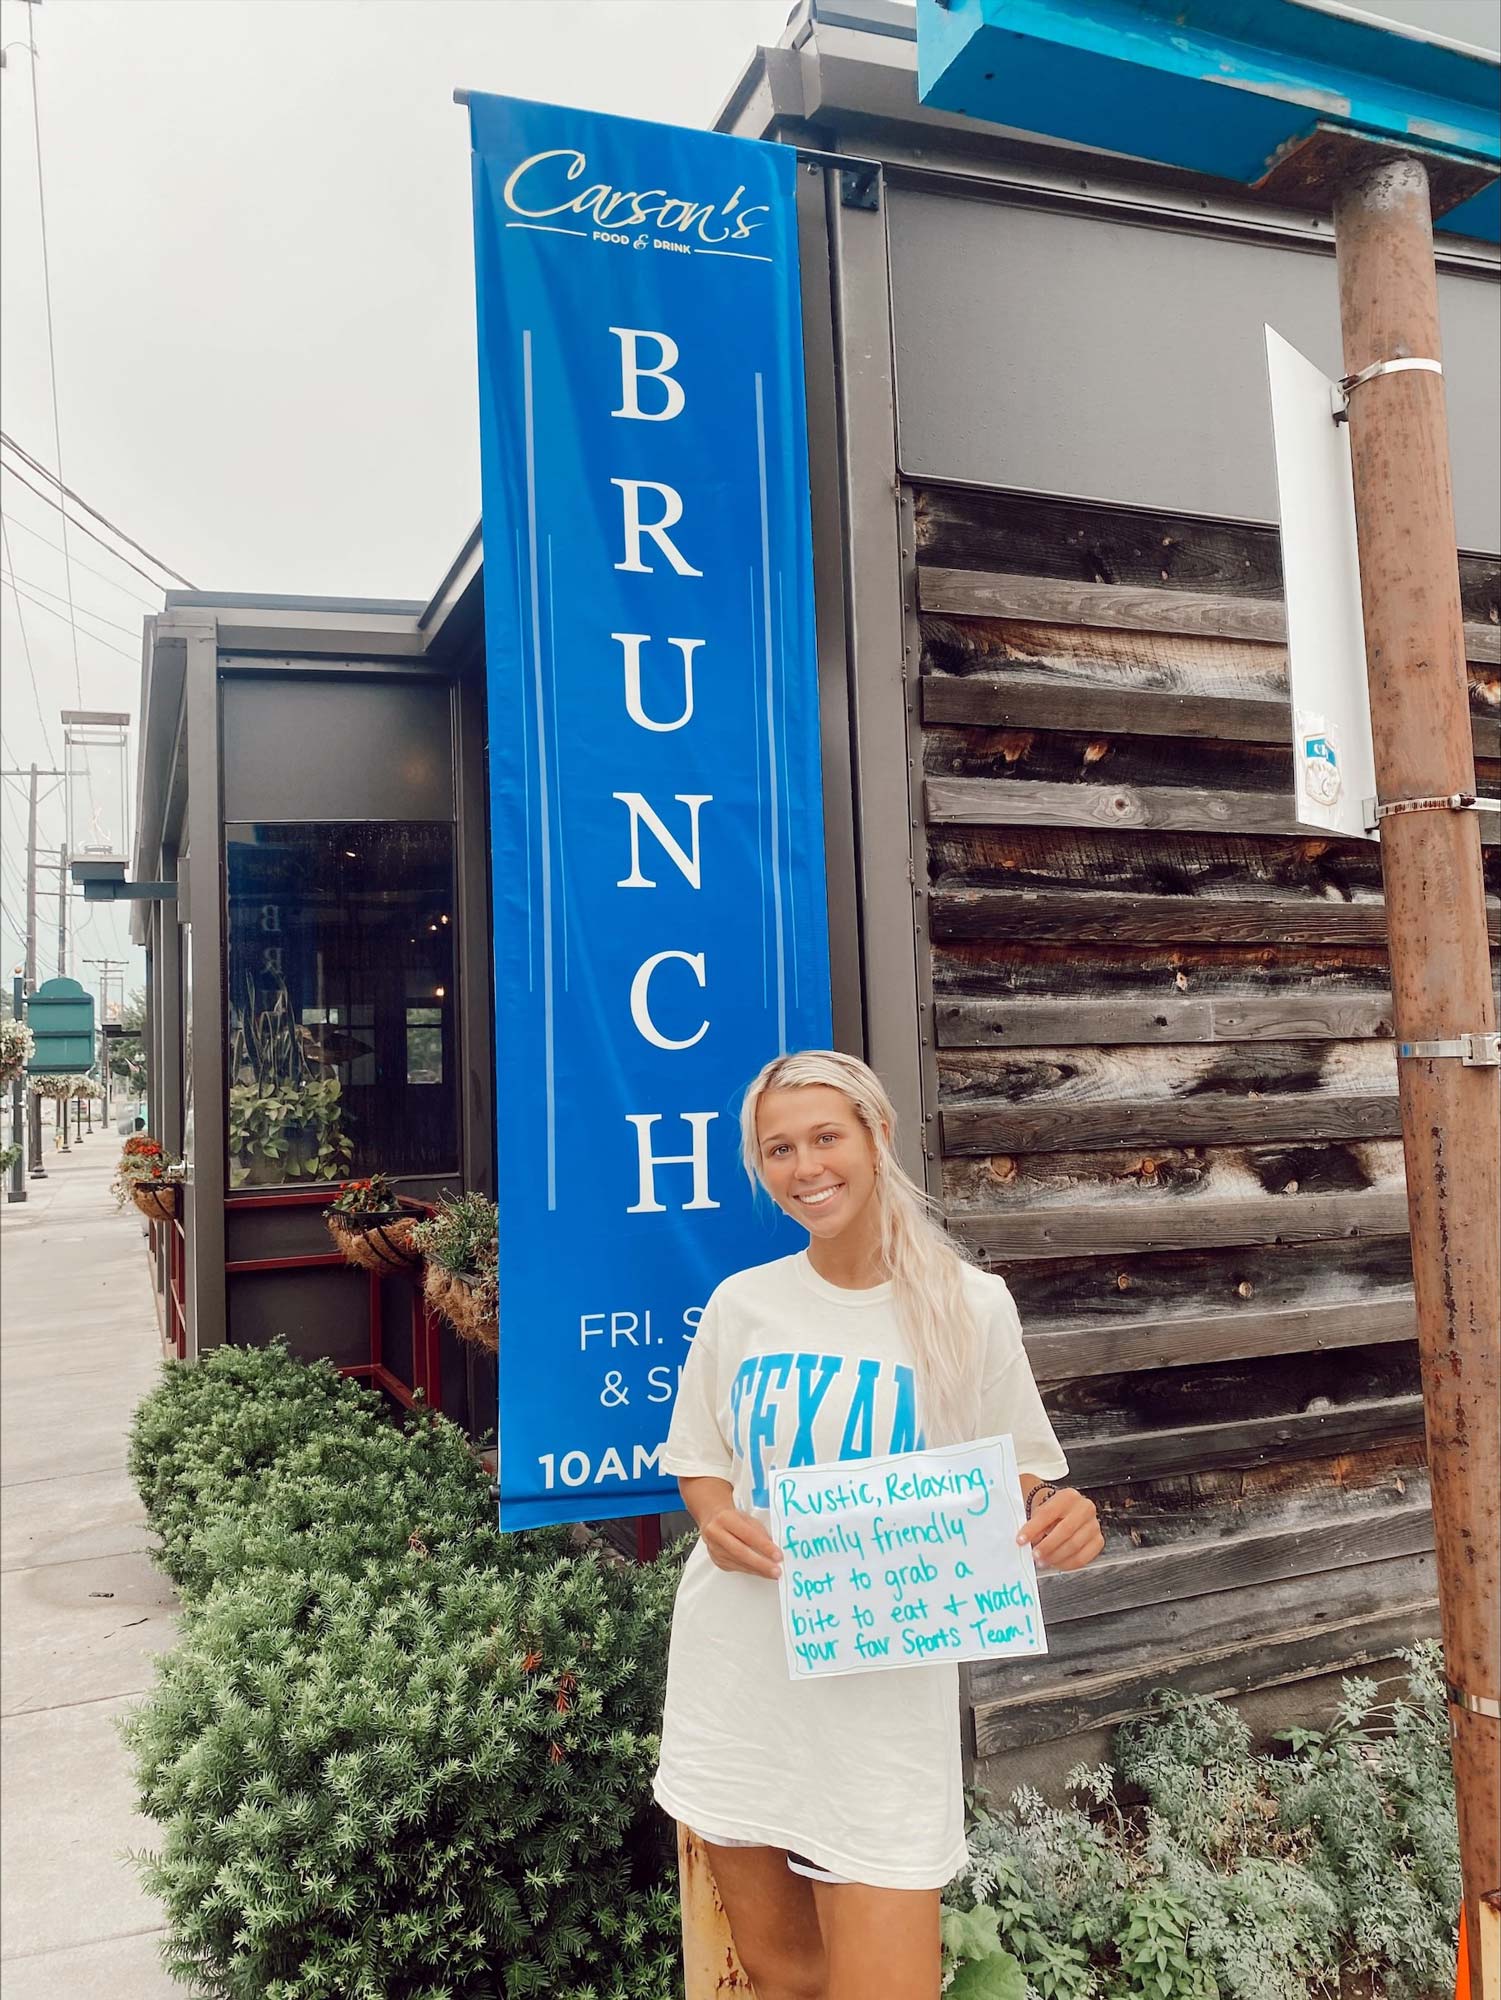 Carson's
FOOD & DRINK
BRUNCH
FRI.
&
10AM
TEXA
Rustic, Relaxing.
family friendly
Spot to grab a
bite to eat & Watch
your fav Sports Team!